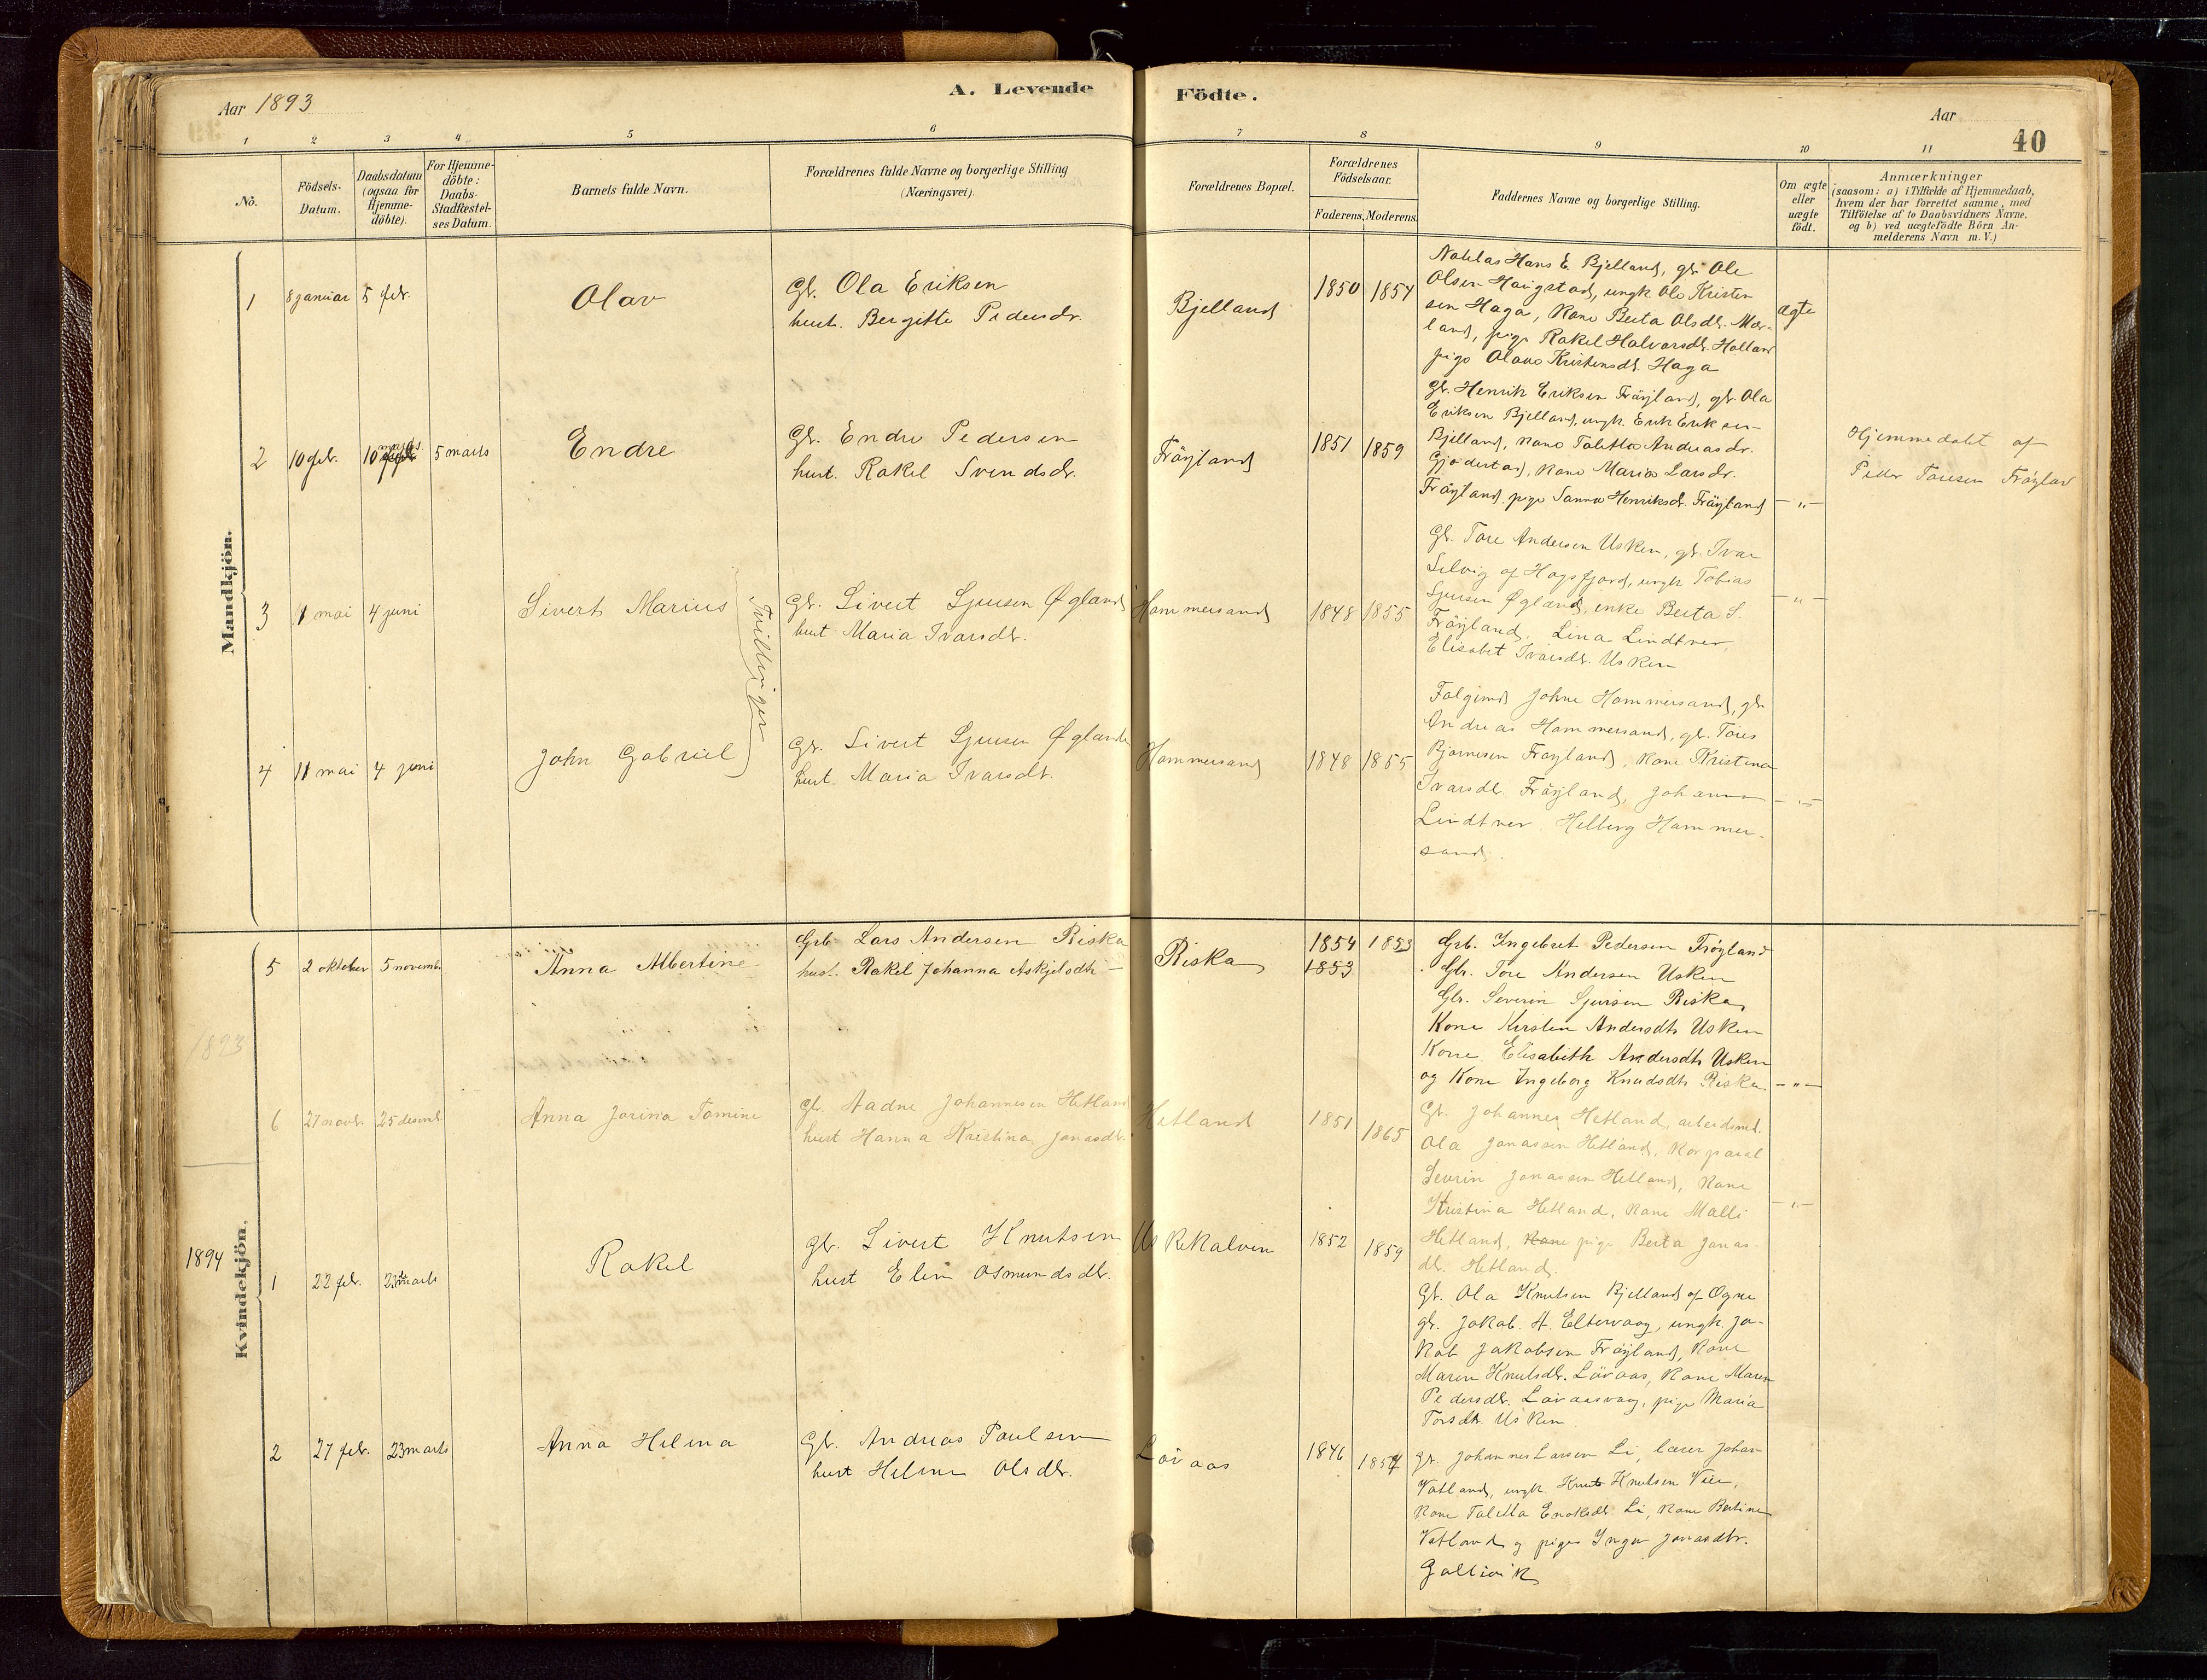 Aar 1893
A. Levende Födte.
Aar
40
1 2 3 4 5 6 7 8 9 10 11
No.
Födsels-Datum.
Daabsdatum (ogsaa for Hjemme-döbte).
For Hjemme-döbte: Daabs-Stadfæstel-ses Datum.
Barnets fulde Navn.
Forældrenes fulde Navne og borgerlige Stilling (Næringsvei).
Forældrenes Bopæl.
Forældrenes Födselsaar.
Faderens. Moderens.
Faddernes Navne og borgerlige Stilling.
Om ægte eller uægte födt.
Anmærkninger
(saasom: a) i Tilfælde af Hjemmedaab,
hvem der har forrettet samme, med
Tilföielse af to Daabsvidners Navne,
og b) ved uægtefödte Börn An-
melderens Navn m. V.)
Mandkjön.
1 8 januar 5 febr. Olav
Gb. Ola Eriksen
hust. Bergitte Pedersdr.
Bjelland 1850 1854
Hans E. Bjelland, gb. Ole
Olsen Haugstad, ungk. Ole Kristen
sen Haga, Kone Berta Olsdr. Mæ-
land, pige Rakel Halvarsdr. Holland
pige Olava Kristensdr. Haga
ægte
2 10 febr. 10 marts 5 marts Endre
Gb. Endre Pedersen
hust. Rakel Svendsdr.
Fröyland 1851 1859
Gb. Henrik Eriksen Fröyland, gb. Ola
Eriksen Bjelland, ungk. Erik Erik sen
Bjelland, Kone Taletta Andreasdr.
Gjödestad, Kone Maria Larsdr.
Fröyland, pige Sanna Henriksdr. Fröyland
- „ -
Hjemmedöbt af
Peder Toresen Fröyland
3 11 mai 4 juni Sivert Marius
Tvillinger
Gb. Sivert Sjursen Øgland
hust Maria Ivarsdr.
Hammersand 1848 1855
Gb. Tore Andersen Usken, gb. Ivar
Selvig af Högsfjord, ungk Tobias
Sjursen Øgland, enke Berta S.
Fröyland. Lina Lindtner,
Elisabet Ivarsdr. Usken
- „ -
4 11 mai 4 juni John Gabriel
Gb. Sivert Sjursen Øgland
hust. Maria Ivarsdr.
Hammersand 1848 1855
Folgemd John Hammersand, gb
Andreas Hammersand, gb. Tores
Bjornsen Fröyland, Kone Kristina
Ivarsdr. Fröyland, Johanna
Lindtner Helberg Hammer-
sand.
- „ -
Kvindekjön.
1893
5 2 oktober 5 novemb. Anna Albertine
Grb Lars Andersen Riska
hust. Rakel Johanna Askjelsdtr
Riska 1854 1853 1853
Grb. Ingebret Pedersen Fröyland
Gbr. Tore Andersen Usken
Gbr. Severin Sjursen Riska
Kone Kirsten Andersdtr Usken
Kone Elisabeth Andersdtr Usken
og Kone Ingeborg Knudsdtr Riska
- „ -
6 27 novb. 25 desemb. Anna Jorina Tomine
Gb. Aadne Johannesen Hetland
hust Hanna Kristina Jonasdtr.
Hetland 1851 1865
Gb. Johannes Hetland, arbeidsmd.
Ola Jonassen Hetland, Korporal
Severin Jonassen Hetland, Kone
Kristina Hetland, Kone Malli
Hetland, Kone pige Berta Jonas-
dr. Hetland.
- „ -
1894
1 22 febr. 23 marts Rakel
gb. Sivert Knutsen
hust Elen Osmundsdtr.
Uskekalven 1852 1859
Gb. Ola Knutsen Bjelland af Ogne
gb. Jakob H. Eltervaag, ungk. Ja-
kob Jakobsen Fröyland, Kone
Maren Knutsdtr. Lövaas, Kone Maren
Pedersdtr. Lövaasvaag, pige Maria
Torsdtr. Usken
2 27 febr. 23 marts Anna Helena
Gb. Andreas Paulsen
hust Helene Olsdtr.
Lövaas 1846 1854
gb. Johannes Larsen Li, lærer Johan
Vatland, ungk. Knut Knutsen Vier,
Kone Taletta Enoksdtr. Li, Kone Bertine
Vatland og pige Inga Jonasdtr.